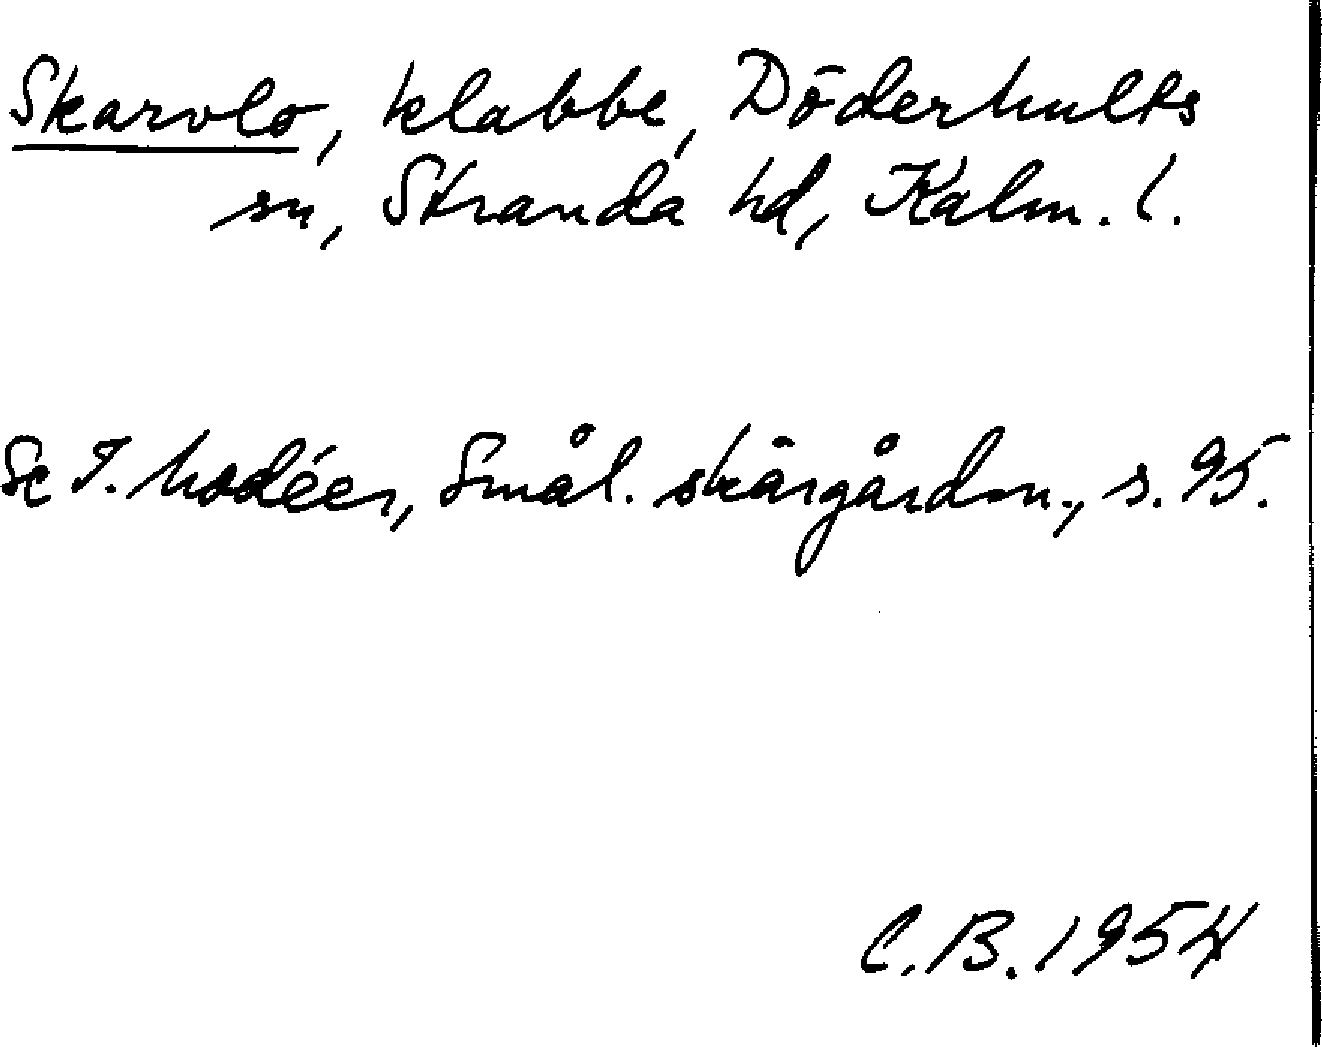 Skarvlo, klabbe, Döderhults
sn, Stranda hd, Kalm. l.
Se I. Modéer, Smål. skärgårdsn., s. 95.
C.B. 1954